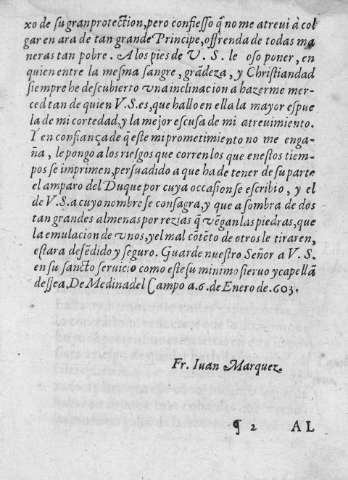 xo de su gran protection, pero confiesso q̃ no me atrevi à col
gar en ara de tan grande Principe, offrenda de todas ma
neras tan pobre. A los pies de V. S. le oso poner, en
quien entre la mesma sangre, grãdeza, y Christiandad
siempre he descubierto vna inclinacion a hazerme mer-
ced tan de quien V.S. es, que hallo en ella la mayor espue
la de mi cortedad, y la mejor escusa de mi atreuimiento.
Y en confiança de q̃ este mi prometimiento no me enga-
ña, le pongo a los riesgos que corren los que en estos tiem-
pos se imprimen, persuadido a que ha de tener de su parte
el amparo del Duque por cuya occasion se escribio, y el
de V.S. a cuyo nombre se consagra, y que a sombra de dos
tan grandes almenas por rezias q̃ vẽgan las piedras, que
la emulacion de vnos, y el mal cõtẽto de otros le tiraren,
estara defẽdido y seguro. Guarde nuestro Señor a V. S.
en su sancto seruicio como este su minimo sieruo y capellã
dessea, De Medina del Campo a. 6. de Enero de. 603.
Fr. Iuan Marquez
¶ 2 AL